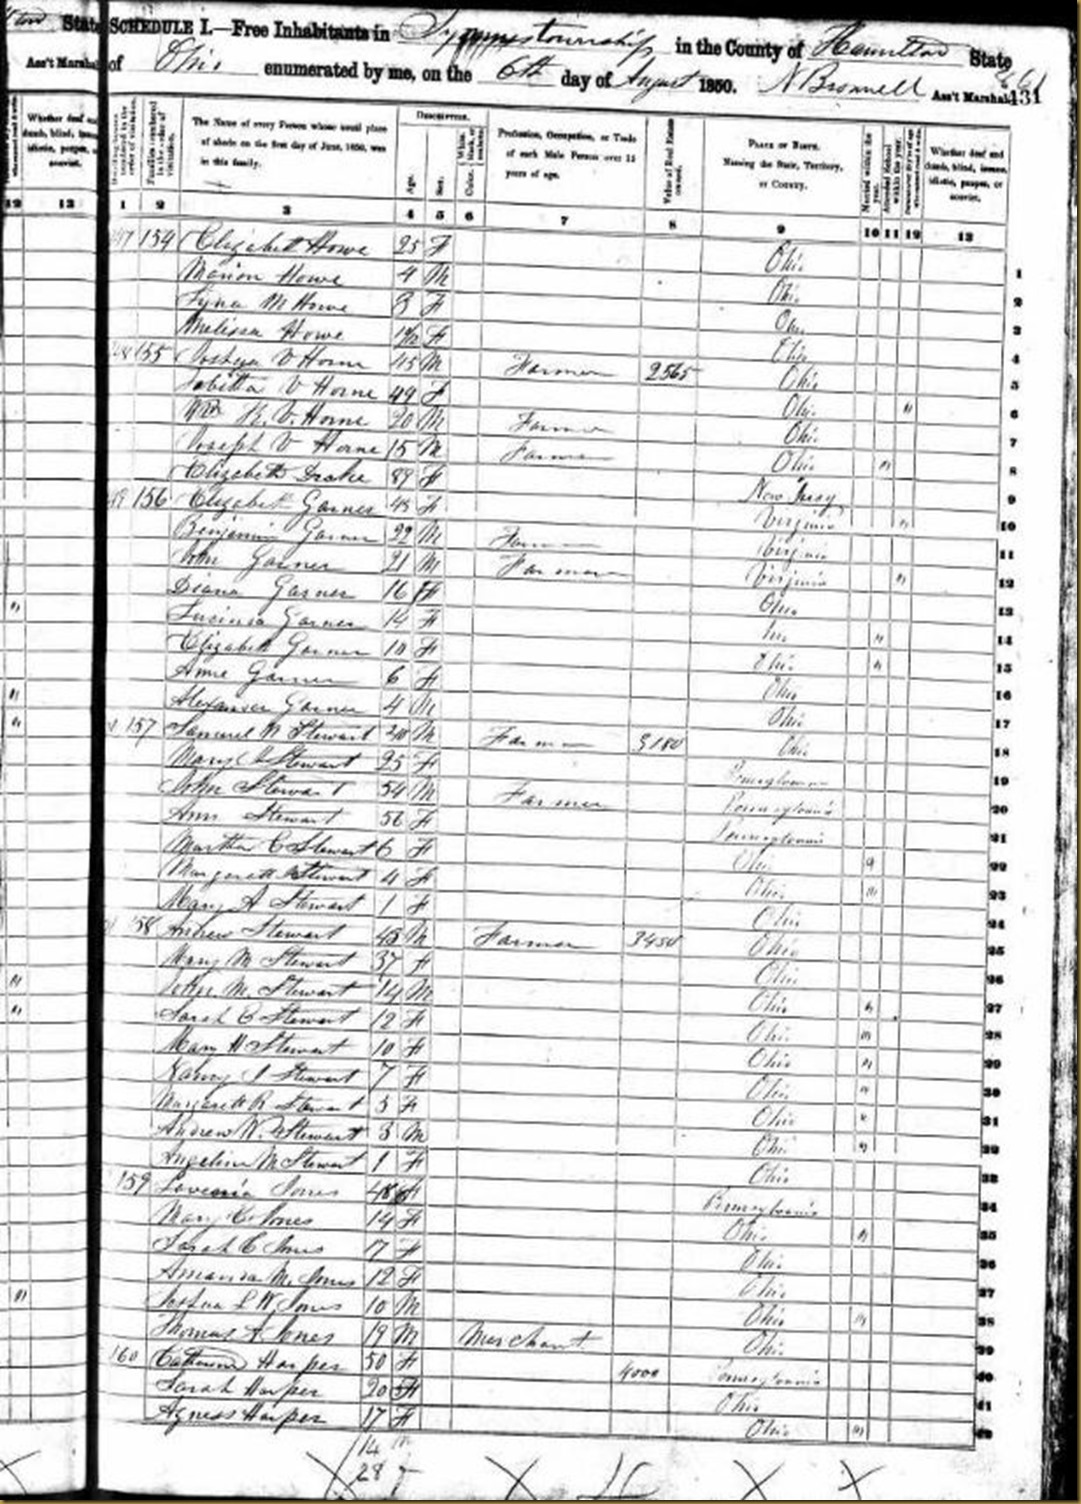 State SCHEDULE I.—Free Inhabitants in township in the County of Hamilton State
Ass't Marshal of Ohio enumerated by me, on the 6th day of August 1850. N Bronnell Ass't Marshal
431
Whether deaf and dumb, blind, insane, idiotic, pauper, or convict.
Families numbered in the order of visitation.
The Name of every Person whose usual place of abode on the first day of June, 1850, was in this family.
Description.
Age.
Sex.
Color, White, black, or mulatto.
Profession, Occupation, or Trade of each Male Person over 15 years of age.
Value of Real Estate owned.
Place of Birth. Naming the State, Territory, or Country.
Married within the year.
Attended School within the year.
Whether deaf and dumb, blind, insane, idiotic, pauper, or convict.
12 13 1 2 3 4 5 6 7 8 9 10 11 12 13
154 Elizabeth Howe 25 F Ohio 1
Marion Howe 4 M Ohio 2
M Howe 3 F Ohio 3
Melissa Howe F Ohio 4
155 Joshua V Horne 45 M Farmer 2565 Ohio 5
V Horne 49 F Ohio " 6
Wm R. V. Horne 20 M Farmer Ohio 7
Joseph V Horne 15 M Farmer Ohio " 8
Elizabeth Drake 89 F New Jersey 9
156 Elizabeth Garner 48 F Virginia " 10
Benjamin Garner 22 M Farmer Virginia 11
John Garner 21 M Farmer Virginia " 12
Diana Garner 16 F Ohio 13
Garner 14 F " 14
Elizabeth Garner 10 F Ohio " 15
Anne Garner 6 F Ohio 16
Alexander Garner 4 M Ohio 17
157 Samuel Stewart M Farmer 3180 Ohio 18
Mary Stewart 25 F Pennsylvania 19
John Stewart 54 M Farmer Pennsylvania 20
Ann Stewart 56 F Pennsylvania 21
Martha C Stewart 6 F Ohio 22
Margarett Stewart 4 F Ohio " 23
Mary A Stewart 1 F Ohio 24
158 Andrew Stewart 45 M Farmer 3450 Ohio 25
Mary M Stewart 37 F Ohio 26
John M. Stewart 14 M Ohio " 27
Sarah C Stewart 12 F Ohio " 28
Mary H Stewart 10 F Ohio " 29
Nancy J Stewart 7 F Ohio " 30
Margarett R Stewart 5 F Ohio " 31
Andrew W. Stewart 3 M Ohio " 32
Angeline M Stewart 1 F Ohio 33
159 Jones 48 F Pennsylvania 34
Mary C Jones 14 F Ohio " 35
Sarah C Jones 17 F Ohio 36
Amanda M. Jones 12 F Ohio 37
Joshua L W Jones 10 M Ohio " 38
Thomas A Jones 19 M Merchant Ohio 39
160 Catherine Harper 50 F 4000 Pennsylvania 40
Sarah Harper 20 F Ohio 41
Agness Harper 17 F Ohio " 42
14 m
28 f